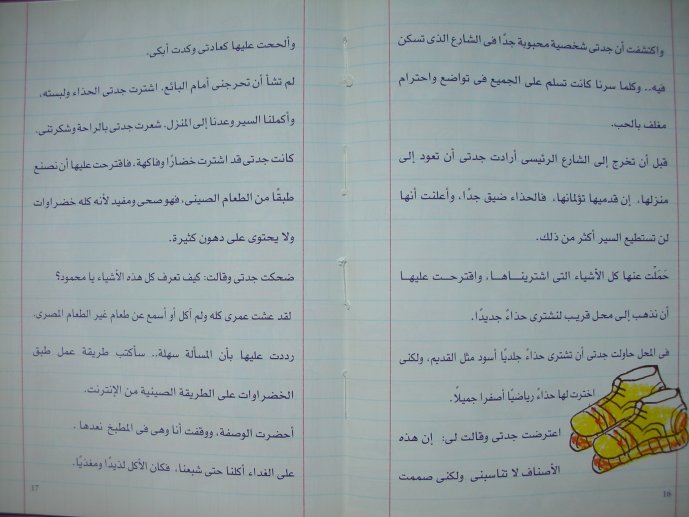 واكتشفت أن جدتى شخصية محبوبة جدًا فى الشارع الذى تسكن
فيه.. وكلما سرنا كانت تسلم على الجميع فى تواضع واحترام
مغلف بالحب.
قبل أن تخرج إلى الشارع الرئيسى أرادت جدتى أن تعود إلى
منزلها، إن قدميها تؤلمانها، فالحذاء ضيق جدًا، وأعلنت أنها
لن تستطيع السير أكثر من ذلك.
حَمَلْت عنها كل الأشياء التى اشتريناها، واقترحت عليها
أن نذهب إلى محل قريب لنشترى حذاءً جديدًا.
فى المحل حاولت جدتى أن تشترى حذاءً جلديًا أسود مثل القديم، ولكنى
اخترت لها حذاءً رياضيًا أصفرا جميلاً.
اعترضت جدتى وقالت لى: إن هذه
الأصناف لا تناسبنى ولكنى صممت
16
وألححت عليها كعادتى وكدت أبكى.
لم تشأ أن تحرجنى أمام البائع. اشترت جدتى الحذاء ولبسته،
وأكملنا السير وعدنا إلى المنزل. شعرت جدتى بالراحة وشكرتنى.
كانت جدتى قد اشترت خضارًا وفاكهة، فاقترحت عليها أن نصنع
طبقًا من الطعام الصينى، فهو صحى ومفيد لأنه كله خضراوات
ولا يحتوى على دهون كثيرة.
ضحكت جدتى وقالت: كيف تعرف كل هذه الأشياء يا محمود؟
لقد عشت عمرى كله ولم آكل أو أسمع عن طعام غير الطعام المصرى.
رددت عليها بأن المسألة سهلة.. سأكتب طريقة عمل طبق
الخضراوات على الطريقة الصينية من الإنترنت.
أحضرت الوصفة، ووقفت أنا وهى فى المطبخ نعدها.
على الغداء أكلنا حتى شبعنا، فكان الأكل لذيذًا ومغذيًا.
17